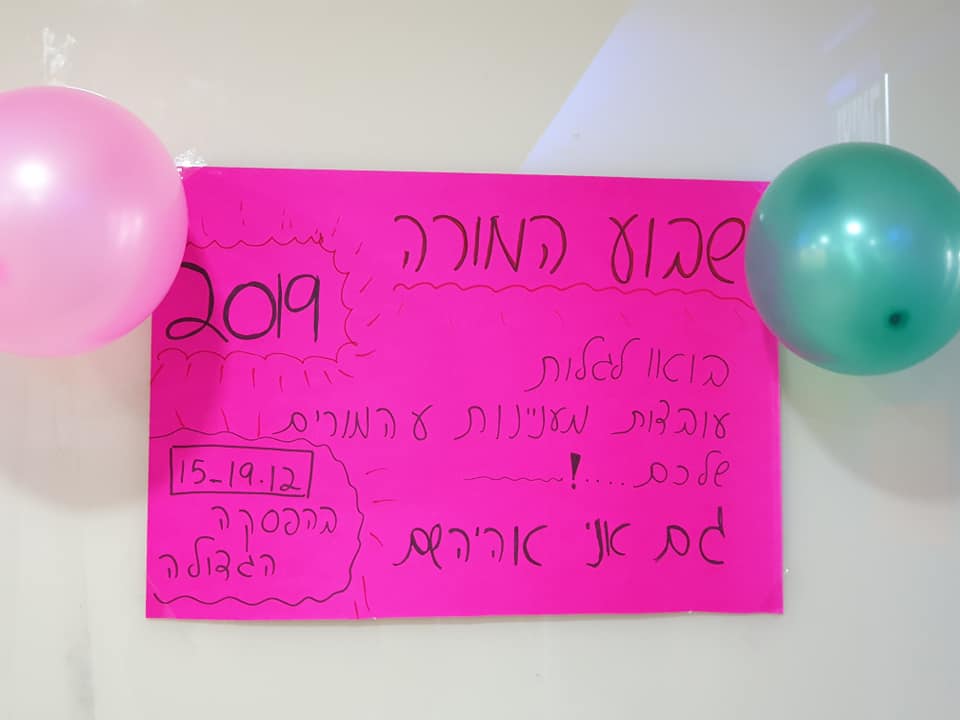 שבוע המורה
2019
בואו לגלות
עובדות מעניינות ע המורים
שלכם....!
גם אני אהיה שם
15-19.12
בהפסקה
הגדולה